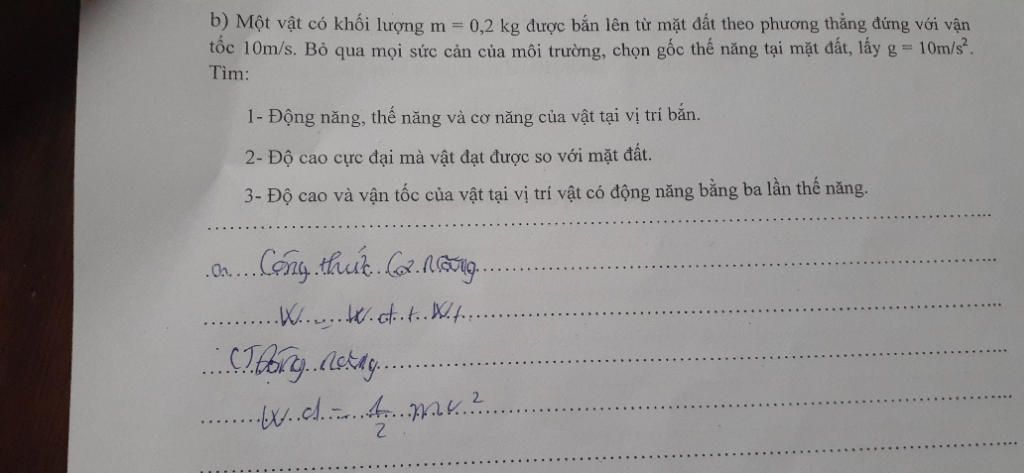 b) Một vật có khối lượng m = 0,2 kg được bắn lên từ mặt đất theo phương thẳng đứng với vận
tốc 10m/s. Bỏ qua mọi sức cản của môi trường, chọn gốc thế năng tại mặt đất, lấy g = 10m/s².
Tìm:
1- Động năng, thế năng và cơ năng của vật tại vị trí bắn.
2- Độ cao cực đại mà vật đạt được so với mặt đất.
3- Độ cao và vận tốc của vật tại vị trí vật có động năng bằng ba lần thế năng.
a. Công thức Cơ năng
W = Wđ + Wt
CT Động năng
Wđ = 1/2 mv²